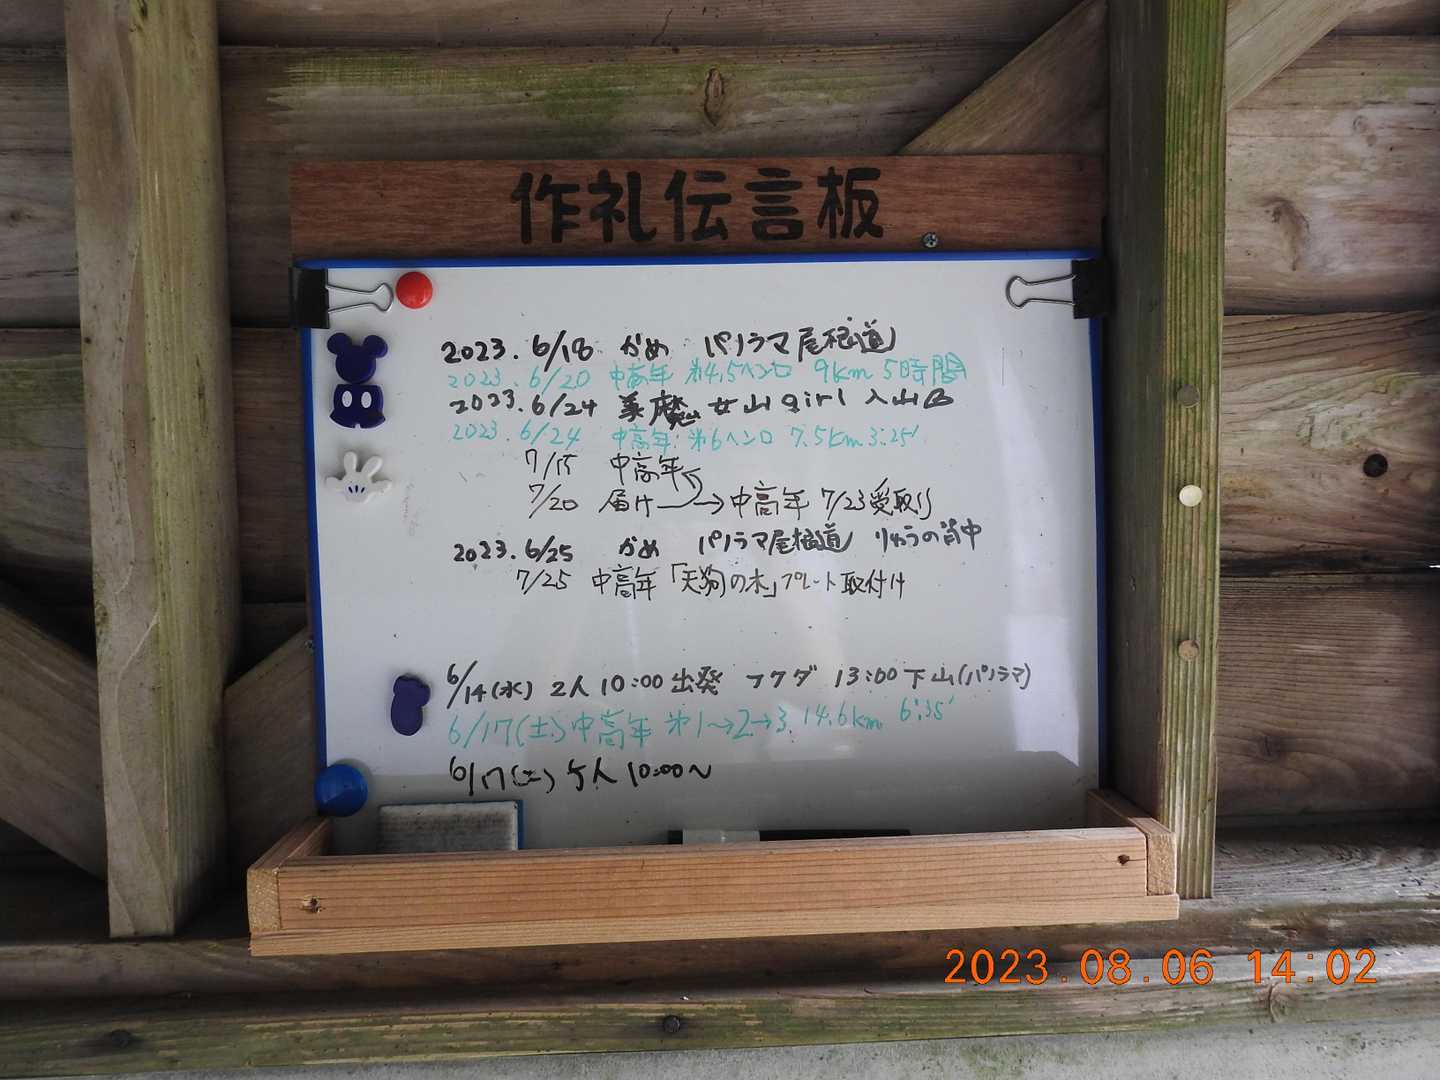 作礼伝言板
2023.6/18 かめ パノラマ尾根道
2023.6/20 中高年 オ4,5ヘンロ 9km 5時間
2023.6/24 美魔女山girl 入山
2023.6/24 中高年 オ6ヘンロ 7.5km 3:25'
7/15 中高年
7/20 届け→中高年 7/23受取り
2023.6/25 かめ パノラマ尾根道 りゅうの背中
7/25 中高年「天狗の木」プレート取付け
6/14(水) 2人 10:00出発 フクダ 13:00下山(パノラマ)
6/17(土)中高年 オ1→2→3. 14.6km 6:35'
6/17(土) 5人 10:00〜
2023.08.06 14:02